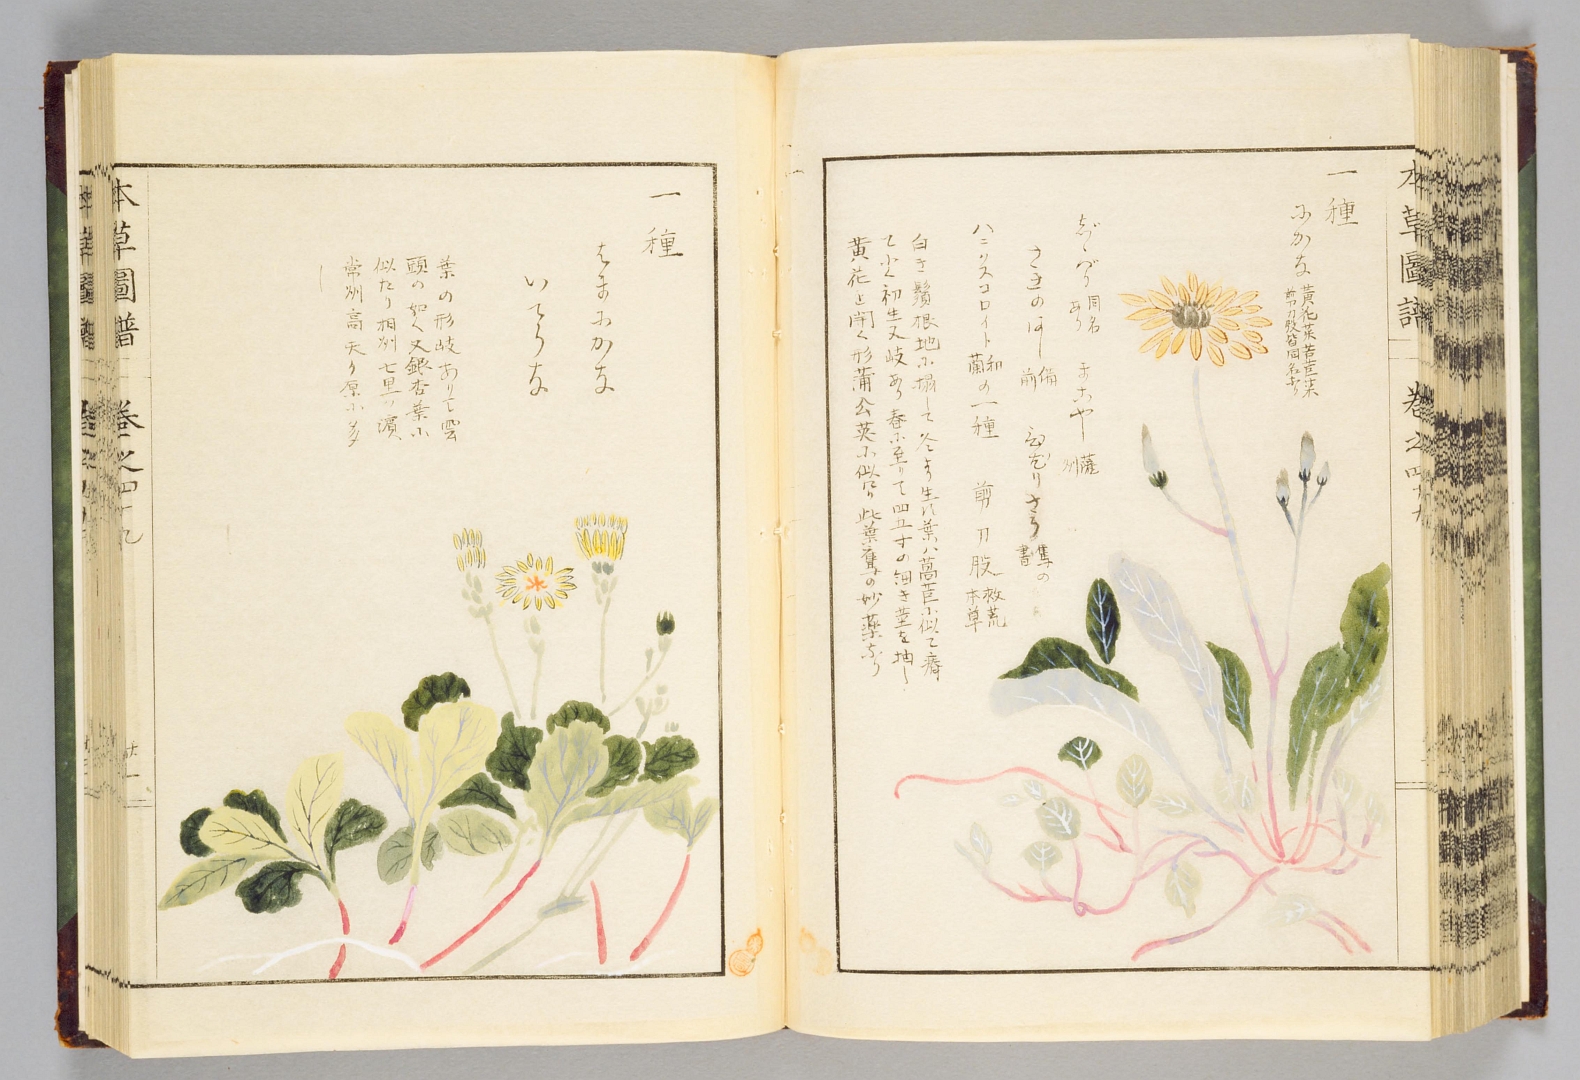 本草圖譜 巻之四十九
一種
にがな 黃花菜 苦苣菜
剪刀股 皆同名あり
ぢしばり 同名あり
まごやし 薩州
備前
隼の書
ハニリスコロイト 和蘭の一種 剪刀股 救荒本草
白き鬚根地に搨して冬より生ず葉ハ萵苣に似て瘠
て小く初生又岐あり春に至りて四五寸の細き莖を抽し
黃花を開く形蒲公英に似たり此葉隼の妙藥なり
一種
はまにがな
いてうな
葉の形岐ありて雲
頭の如く又銀杏葉に
似たり相州七里ヶ濱
常州高天ヶ原に多
し
本草圖譜 巻之四十九
廿一